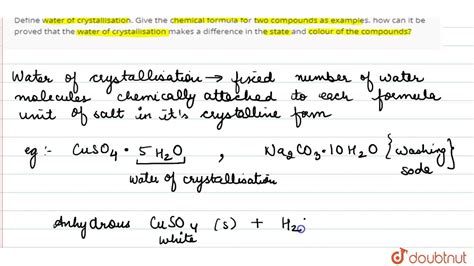 Define water of crystallisation. Give the chemical formula for two compounds as examples. how can it be
proved that the water of crystallisation makes a difference in the state and colour of the compounds?
Water of crystallisation → fixed number of water
molecules chemically attached to each formula
unit of salt in it's crystalline form
eg :- CuSO4 · 5H2O , Na2CO3·10H2O {Washing
soda
Water of crystallisation
Anhydrous CuSO4 (s) + H2
white
doubtnut